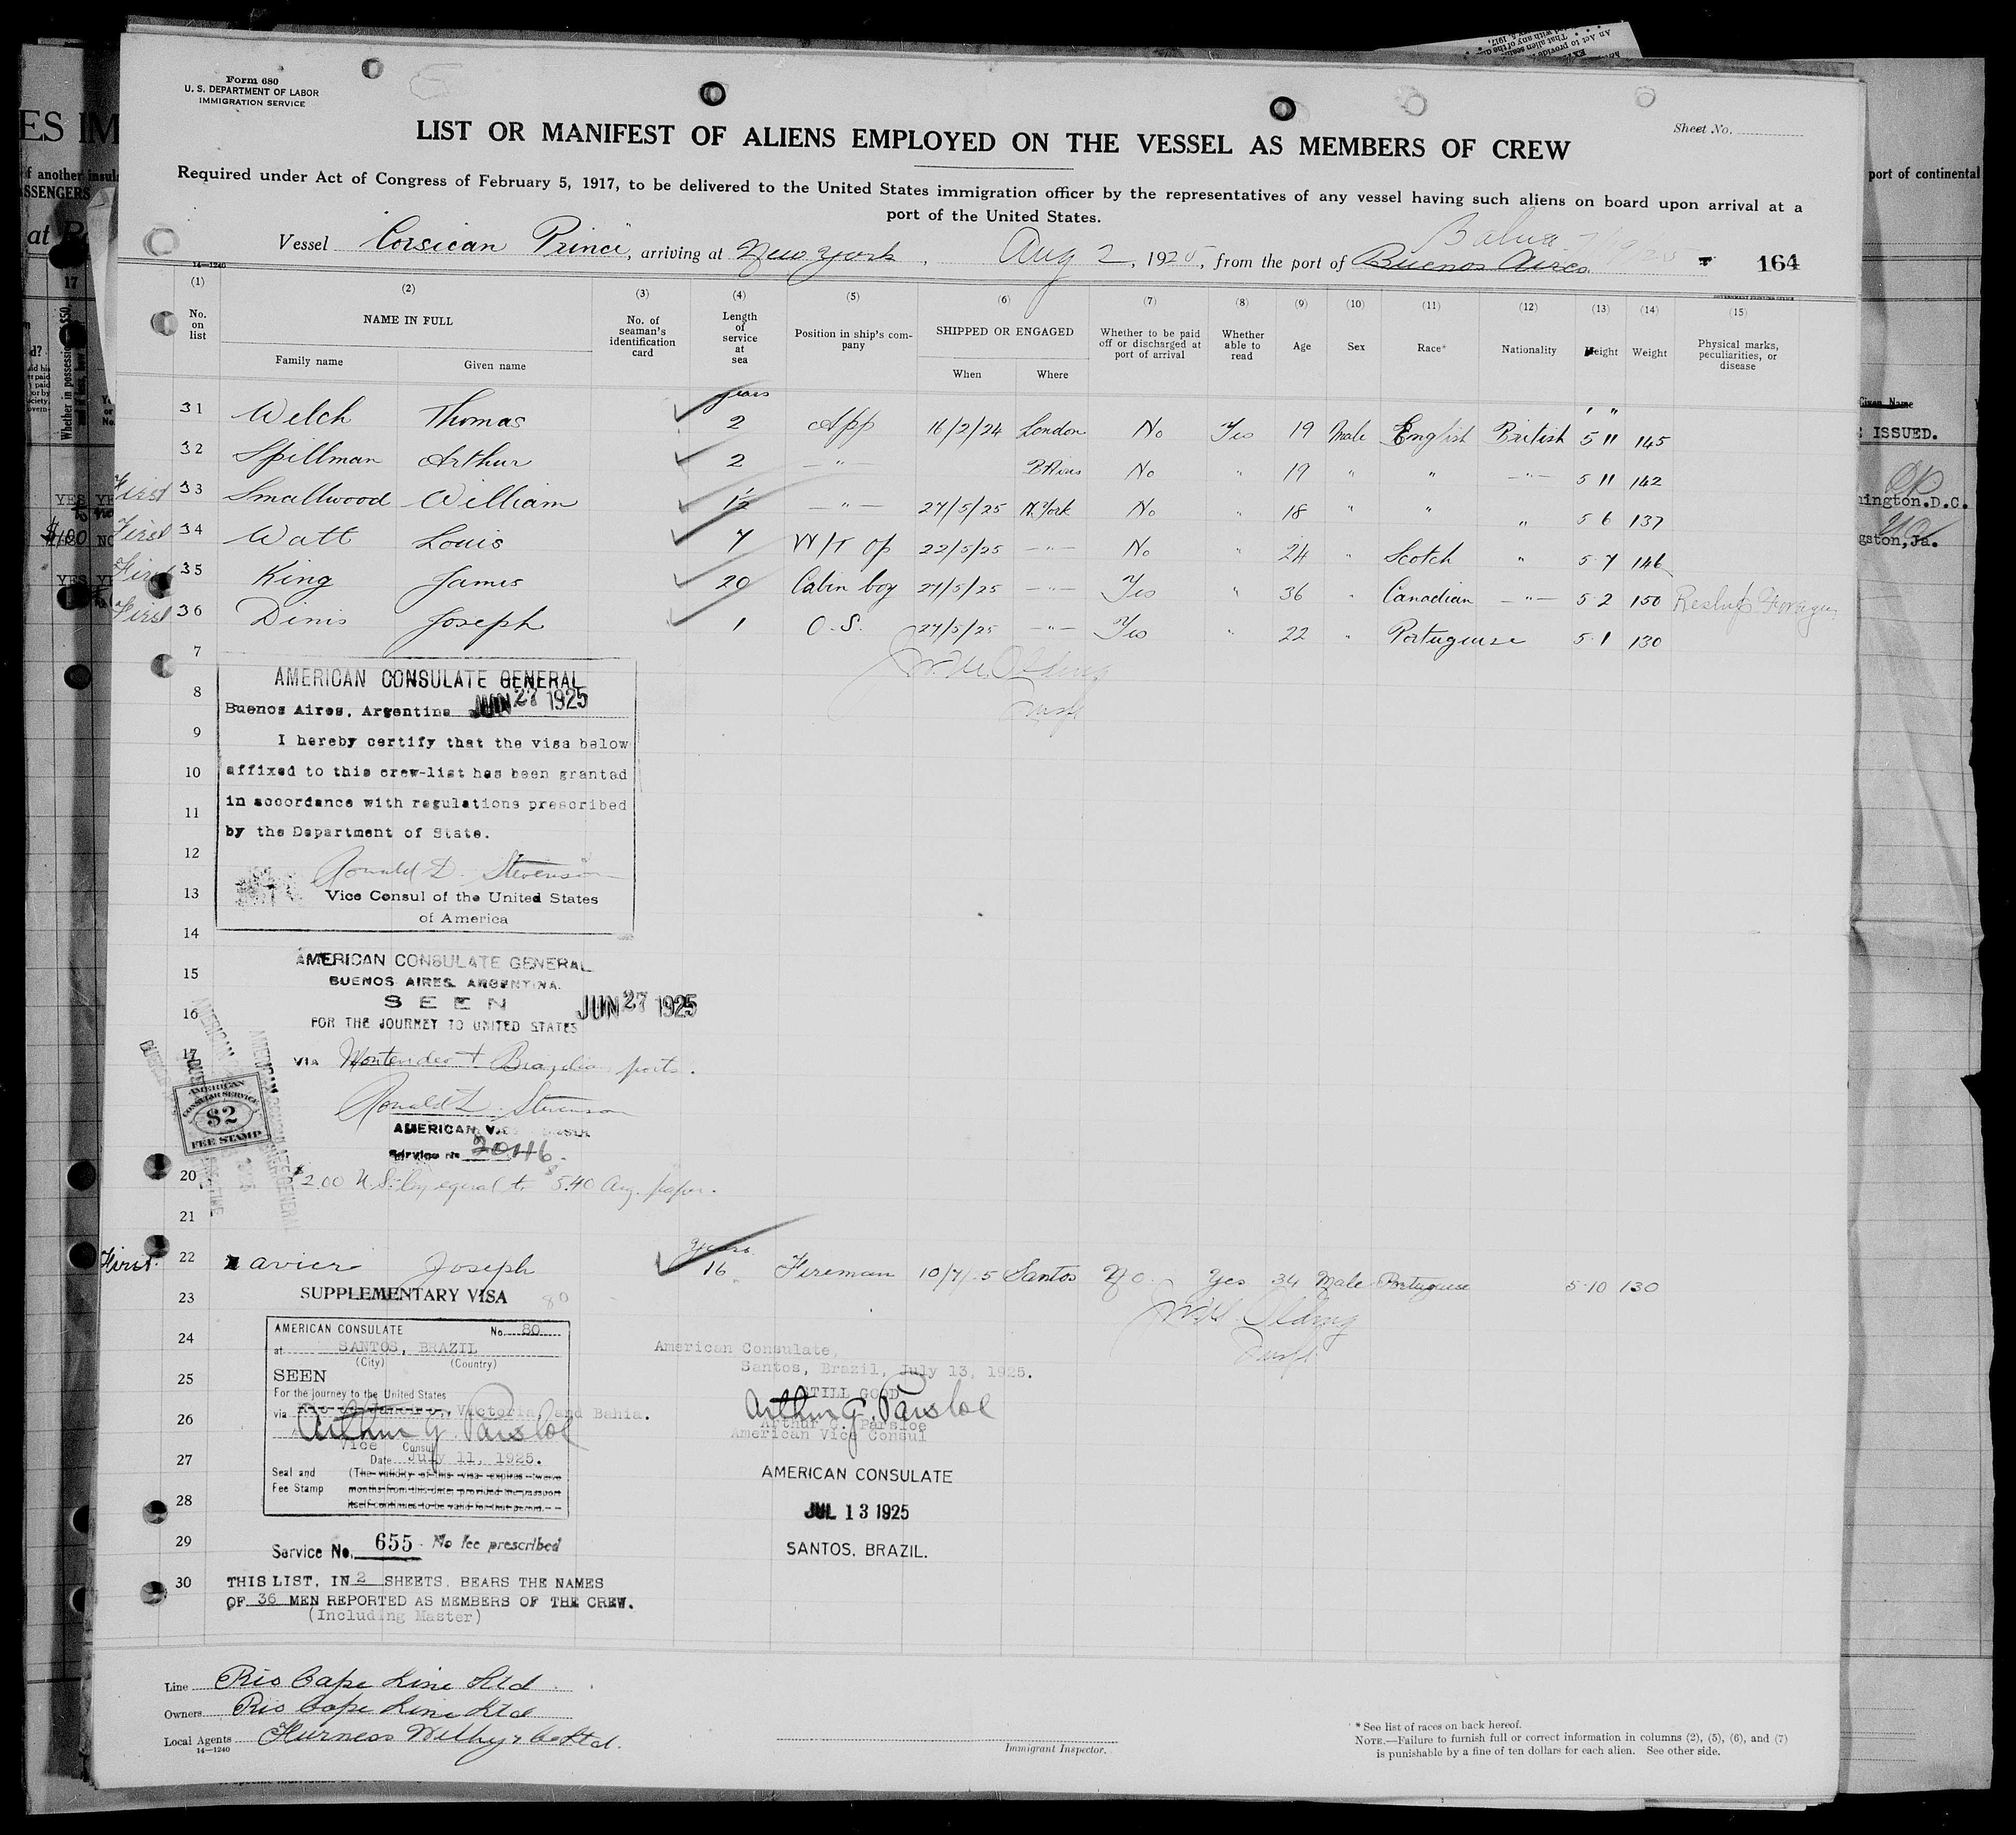 Form 680
U. S. DEPARTMENT OF LABOR
IMMIGRATION SERVICE
Sheet No.
LIST OR MANIFEST OF ALIENS EMPLOYED ON THE VESSEL AS MEMBERS OF CREW
Required under Act of Congress of February 5, 1917, to be delivered to the United States immigration officer by the representatives of any vessel having such aliens on board upon arrival at a
port of the United States.
Bahia
Vessel Corsican Prince, arriving at New York, Aug 2, 1925, from the port of Buenos Aires 164
14—1240
(1) (2) (3) (4) (5) (6) (7) (8) (9) (10) (11) (12) (13) (14) (15)
No. on list NAME IN FULL Family name Given name No. of seaman's identification card Length of service at sea Position in ship's company SHIPPED OR ENGAGED When Where Whether to be paid off or discharged at port of arrival Whether able to read Age Sex Race* Nationality Height Weight Physical marks, peculiarities, or disease
years ' "
31 Welch Thomas 2 App 16/2/24 London No Yes 19 Male English British 5 11 145
32 Spillman Arthur 2 —"— BAires No " 19 " " —"— 5 11 142
First 33 Smallwood William 1½ —"— 27/5/25 N.York No " 18 " " " 5 6 137
First 34 Watt Louis 7 W/T Op 22/5/25 —"— No " 24 " Scotch " 5 7 146
First 35 King James 20 Cabin boy 27/5/25 —"— Yes " 36 " Canadian —"— 5 2 150
First 36 Dinis Joseph 1 O.S. 27/5/25 —"— Yes " 22 " Portuguese 5 1 130
7
AMERICAN CONSULATE GENERAL
8
Buenos Aires, Argentina JUN 27 1925
9
I hereby certify that the visa below
10
affixed to this crew-list has been granted
11
in accordance with regulations prescribed
by the Department of State.
12
Ronald D. Stevenson
13
Vice Consul of the United States
of America
14
AMERICAN CONSULATE GENERAL
15
BUENOS AIRES, ARGENTINA.
SEEN JUN 27 1925
16
FOR THE JOURNEY TO UNITED STATES
17
VIA Montevideo + Brazilian ports.
AMERICAN CONSULAR SERVICE
$2
FEE STAMP
Ronald D. Stevenson
AMERICAN V
Service No 20446.
20
$2.00 U.S. Cy equal to $5.40 Arg. paper.
21
years
First 22 Xavier Joseph 16 Fireman 10/7/25 Santos No. Yes 34 Male Portuguese 5-10 130
23
SUPPLEMENTARY VISA 80
24
AMERICAN CONSULATE No. 80
at SANTOS, BRAZIL
(City) (Country)
25
SEEN
For the journey to the United States
26
via Rio de Janeiro, Victoria, and Bahia.
Arthur G. Parsloe
Vice Consul
27
Date July 11, 1925.
Seal and Fee Stamp
(The validity of this visa expires twelve
28
months from this date, provided the passport
itself continues to be valid for that period.
American Consulate,
Santos, Brazil, July 13, 1925.
STILL GOOD
Arthur G. Parsloe
Arthur G. Parsloe
American Vice Consul
AMERICAN CONSULATE
JUL 13 1925
SANTOS, BRAZIL.
29
Service No. 655 No fee prescribed
30
THIS LIST, IN 2 SHEETS, BEARS THE NAMES
OF 36 MEN REPORTED AS MEMBERS OF THE CREW.
(Including Master)
Line Rio Cape Line Ltd
Owners Rio Cape Line Ltd
Local Agents Furness Withy & Co Ltd.
14—1240
Immigrant Inspector.
* See list of races on back hereof.
NOTE.—Failure to furnish full or correct information in columns (2), (5), (6), and (7)
is punishable by a fine of ten dollars for each alien. See other side.
port of continental
ISSUED.